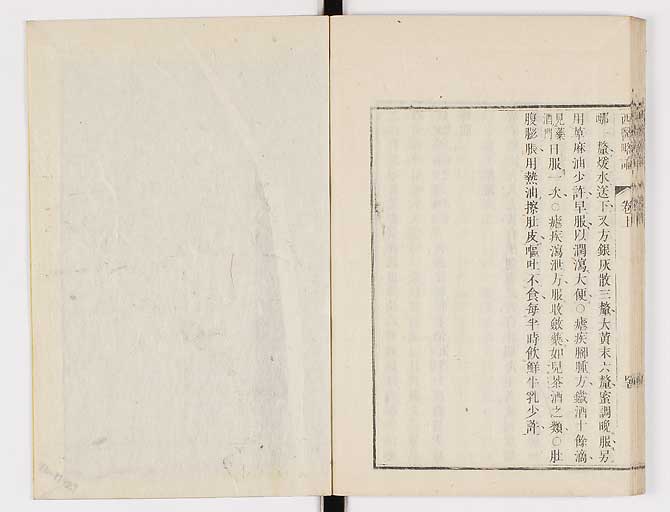 西醫略論 卷下
嚅一釐煖水送下又方銀灰散三釐大黃末六釐蜜調晚服另
用萆麻油少許早服以潤瀉大便○瘧疾腳腫方鐵酒十餘滴
見藥酒門日服一次○瘧疾瀉泄方服收斂藥如兒茶酒之類○肚
腹膨脹用熱油擦肚皮嘔吐不食每半時飲鮮牛乳少許